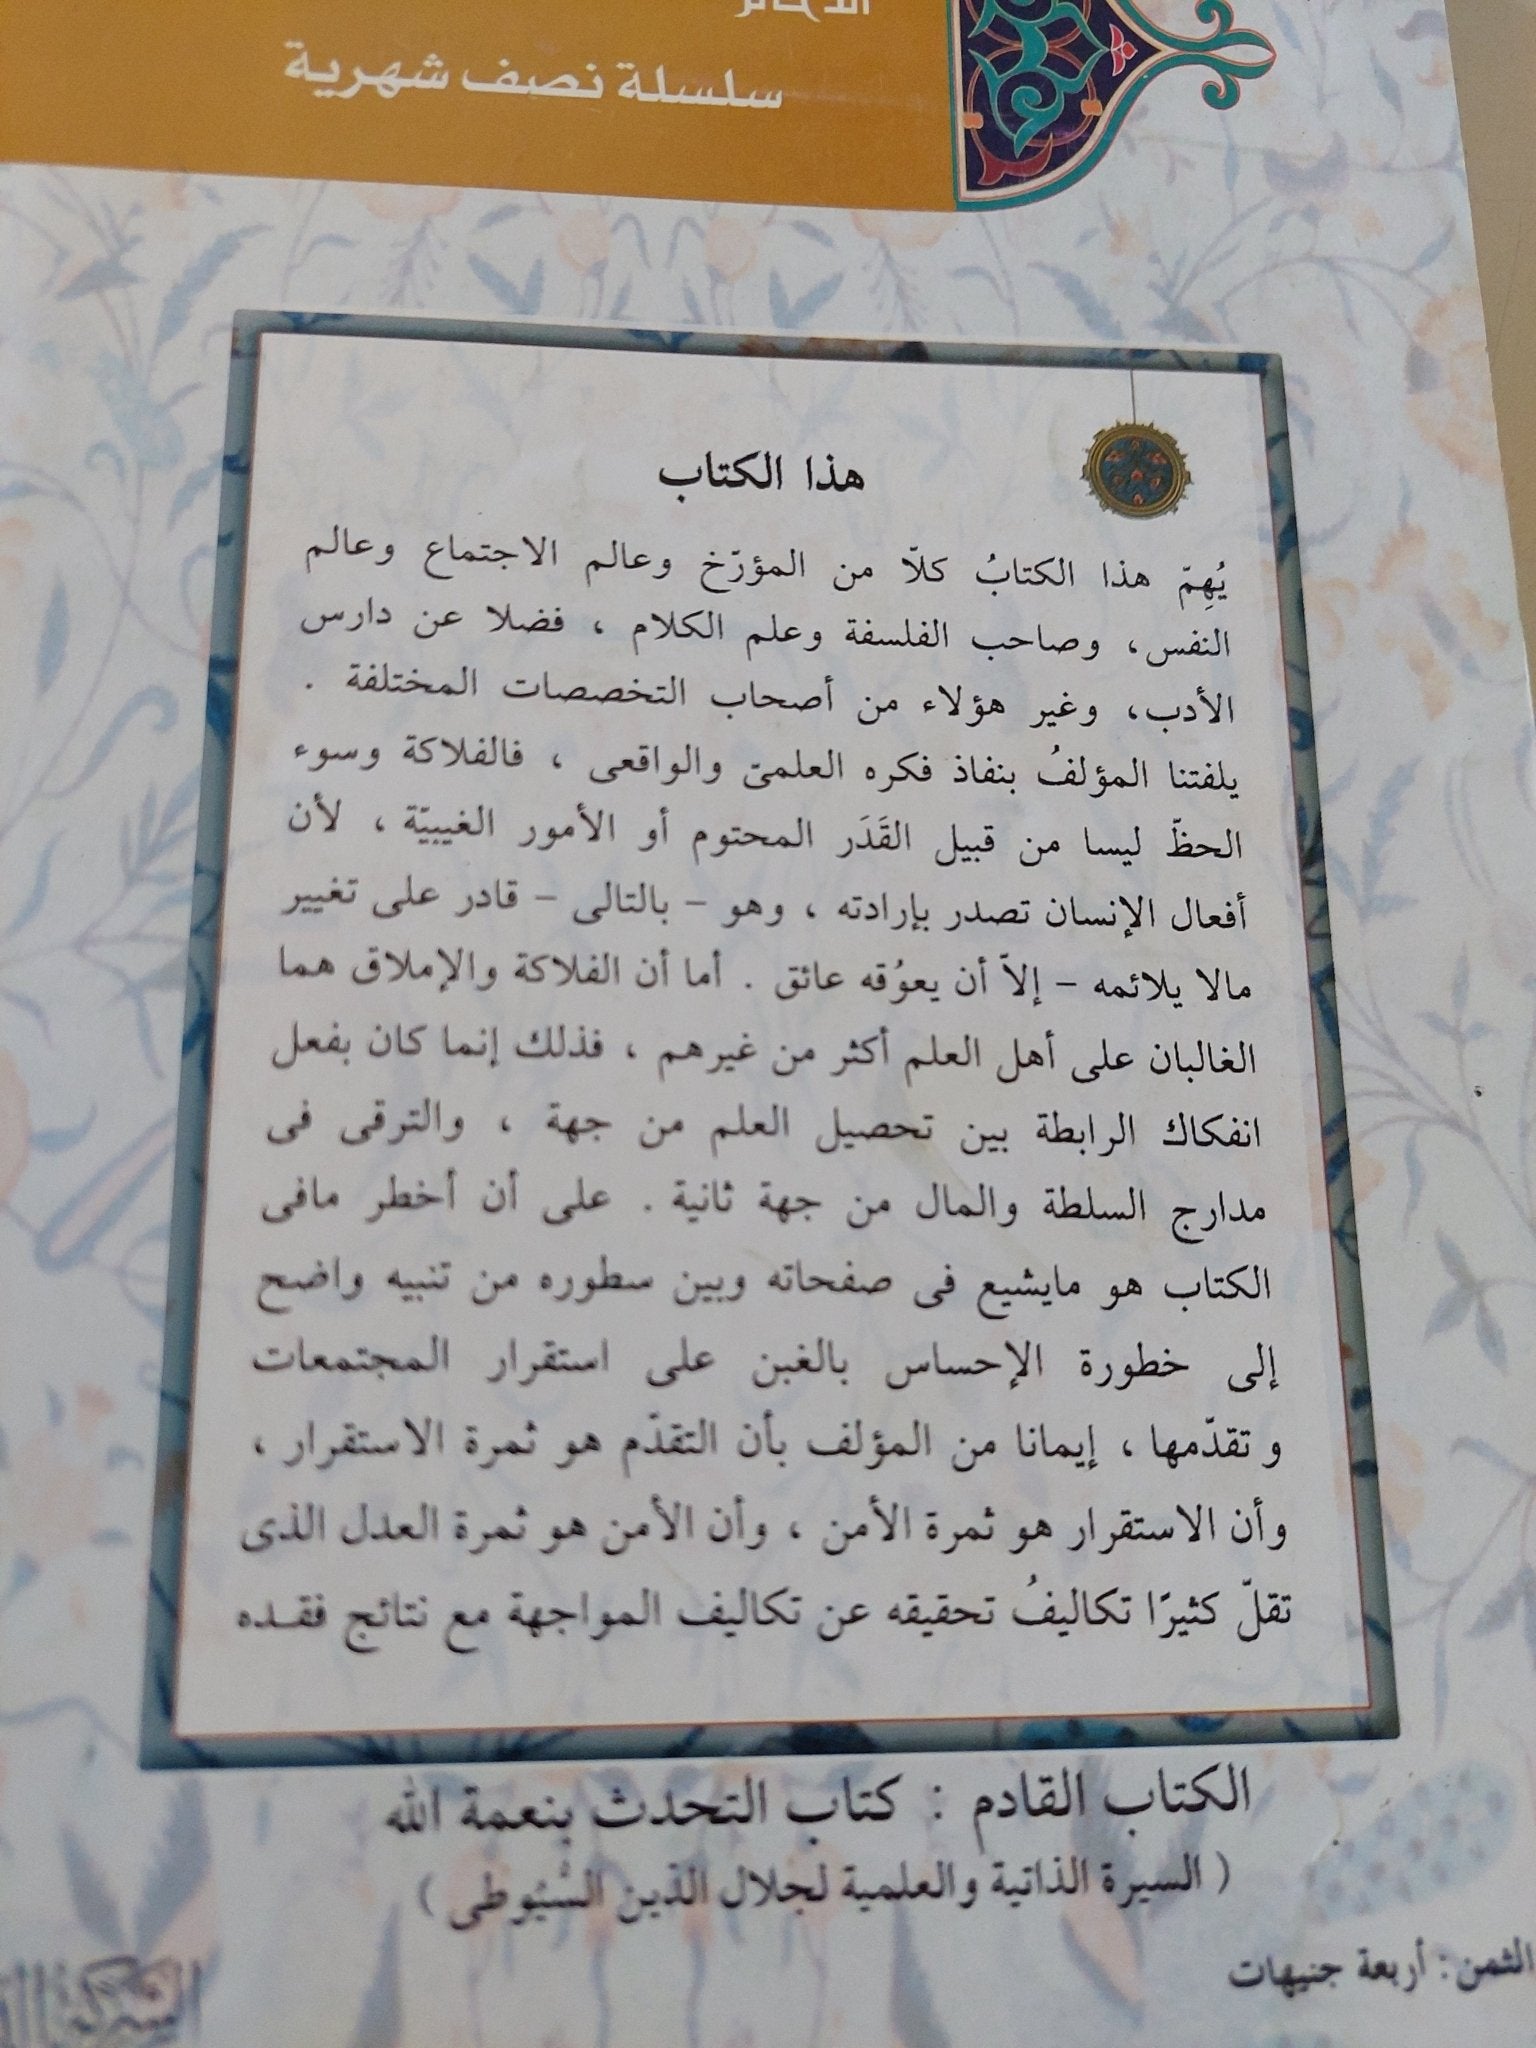 الذخائر
سلسلة نصف شهرية
هذا الكتاب
يُهِمّ هذا الكتابُ كلاّ من المؤرّخ وعالم الاجتماع وعالم
النفس، وصاحب الفلسفة وعلم الكلام ، فضلا عن دارس
الأدب، وغير هؤلاء من أصحاب التخصصات المختلفة .
يلفتنا المؤلفُ بنفاذ فكره العلمىّ والواقعى ، فالفلاكة وسوء
الحظّ ليسا من قبيل القَدَر المحتوم أو الأمور الغيبيّة ، لأن
أفعال الإنسان تصدر بإرادته ، وهو - بالتالى - قادر على تغيير
مالا يلائمه - إلاّ أن يعوُقه عائق . أما أن الفلاكة والإملاق هما
الغالبان على أهل العلم أكثر من غيرهم ، فذلك إنما كان بفعل
انفكاك الرابطة بين تحصيل العلم من جهة ، والترقى فى
مدارج السلطة والمال من جهة ثانية . على أن أخطر مافى
الكتاب هو مايشيع فى صفحاته وبين سطوره من تنبيه واضح
إلى خطورة الإحساس بالغبن على استقرار المجتمعات
وتقدّمها ، إيمانا من المؤلف بأن التقدّم هو ثمرة الاستقرار ،
وأن الاستقرار هو ثمرة الأمن ، وأن الأمن هو ثمرة العدل الذى
تقلّ كثيرًا تكاليفُ تحقيقه عن تكاليف المواجهة مع نتائج فقـده
الكتاب القادم : كتاب التحدث بنعمة الله
( السيرة الذاتية والعلمية لجلال الدين السُّيُوطى )
الثمن : أربعة جنيهات